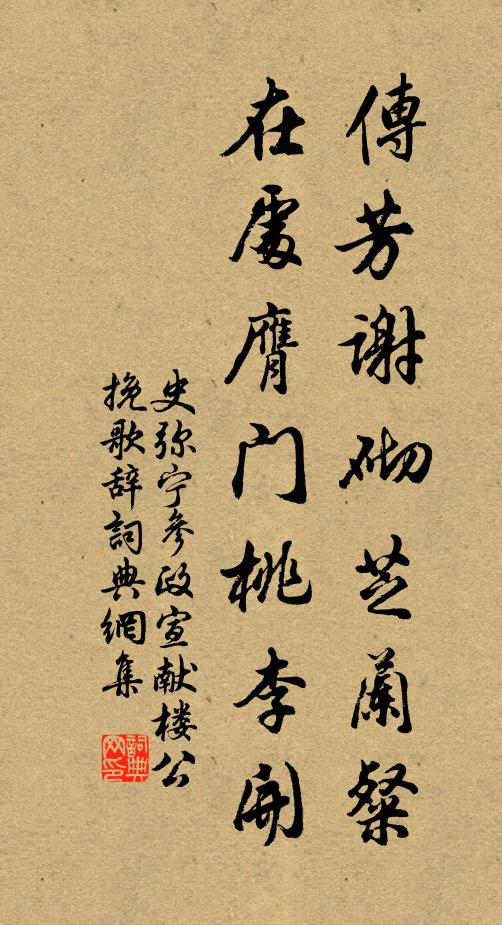 傳芳謝砌芝蘭粲
在處膺门桃李開
史弥宁参政宣献楼公
挽歌辞詞典網集
詞典网印